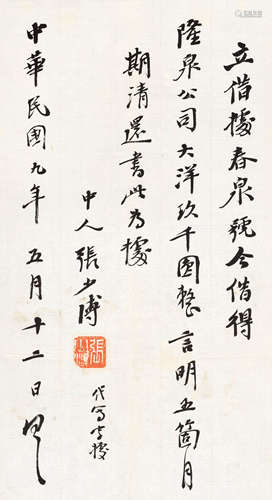 立借據春泉號今借得
隆泉公司大洋玖千圓整言明五箇月
期清還書此為據
中人張少博
代寫李援
中華民國九年五月十二日